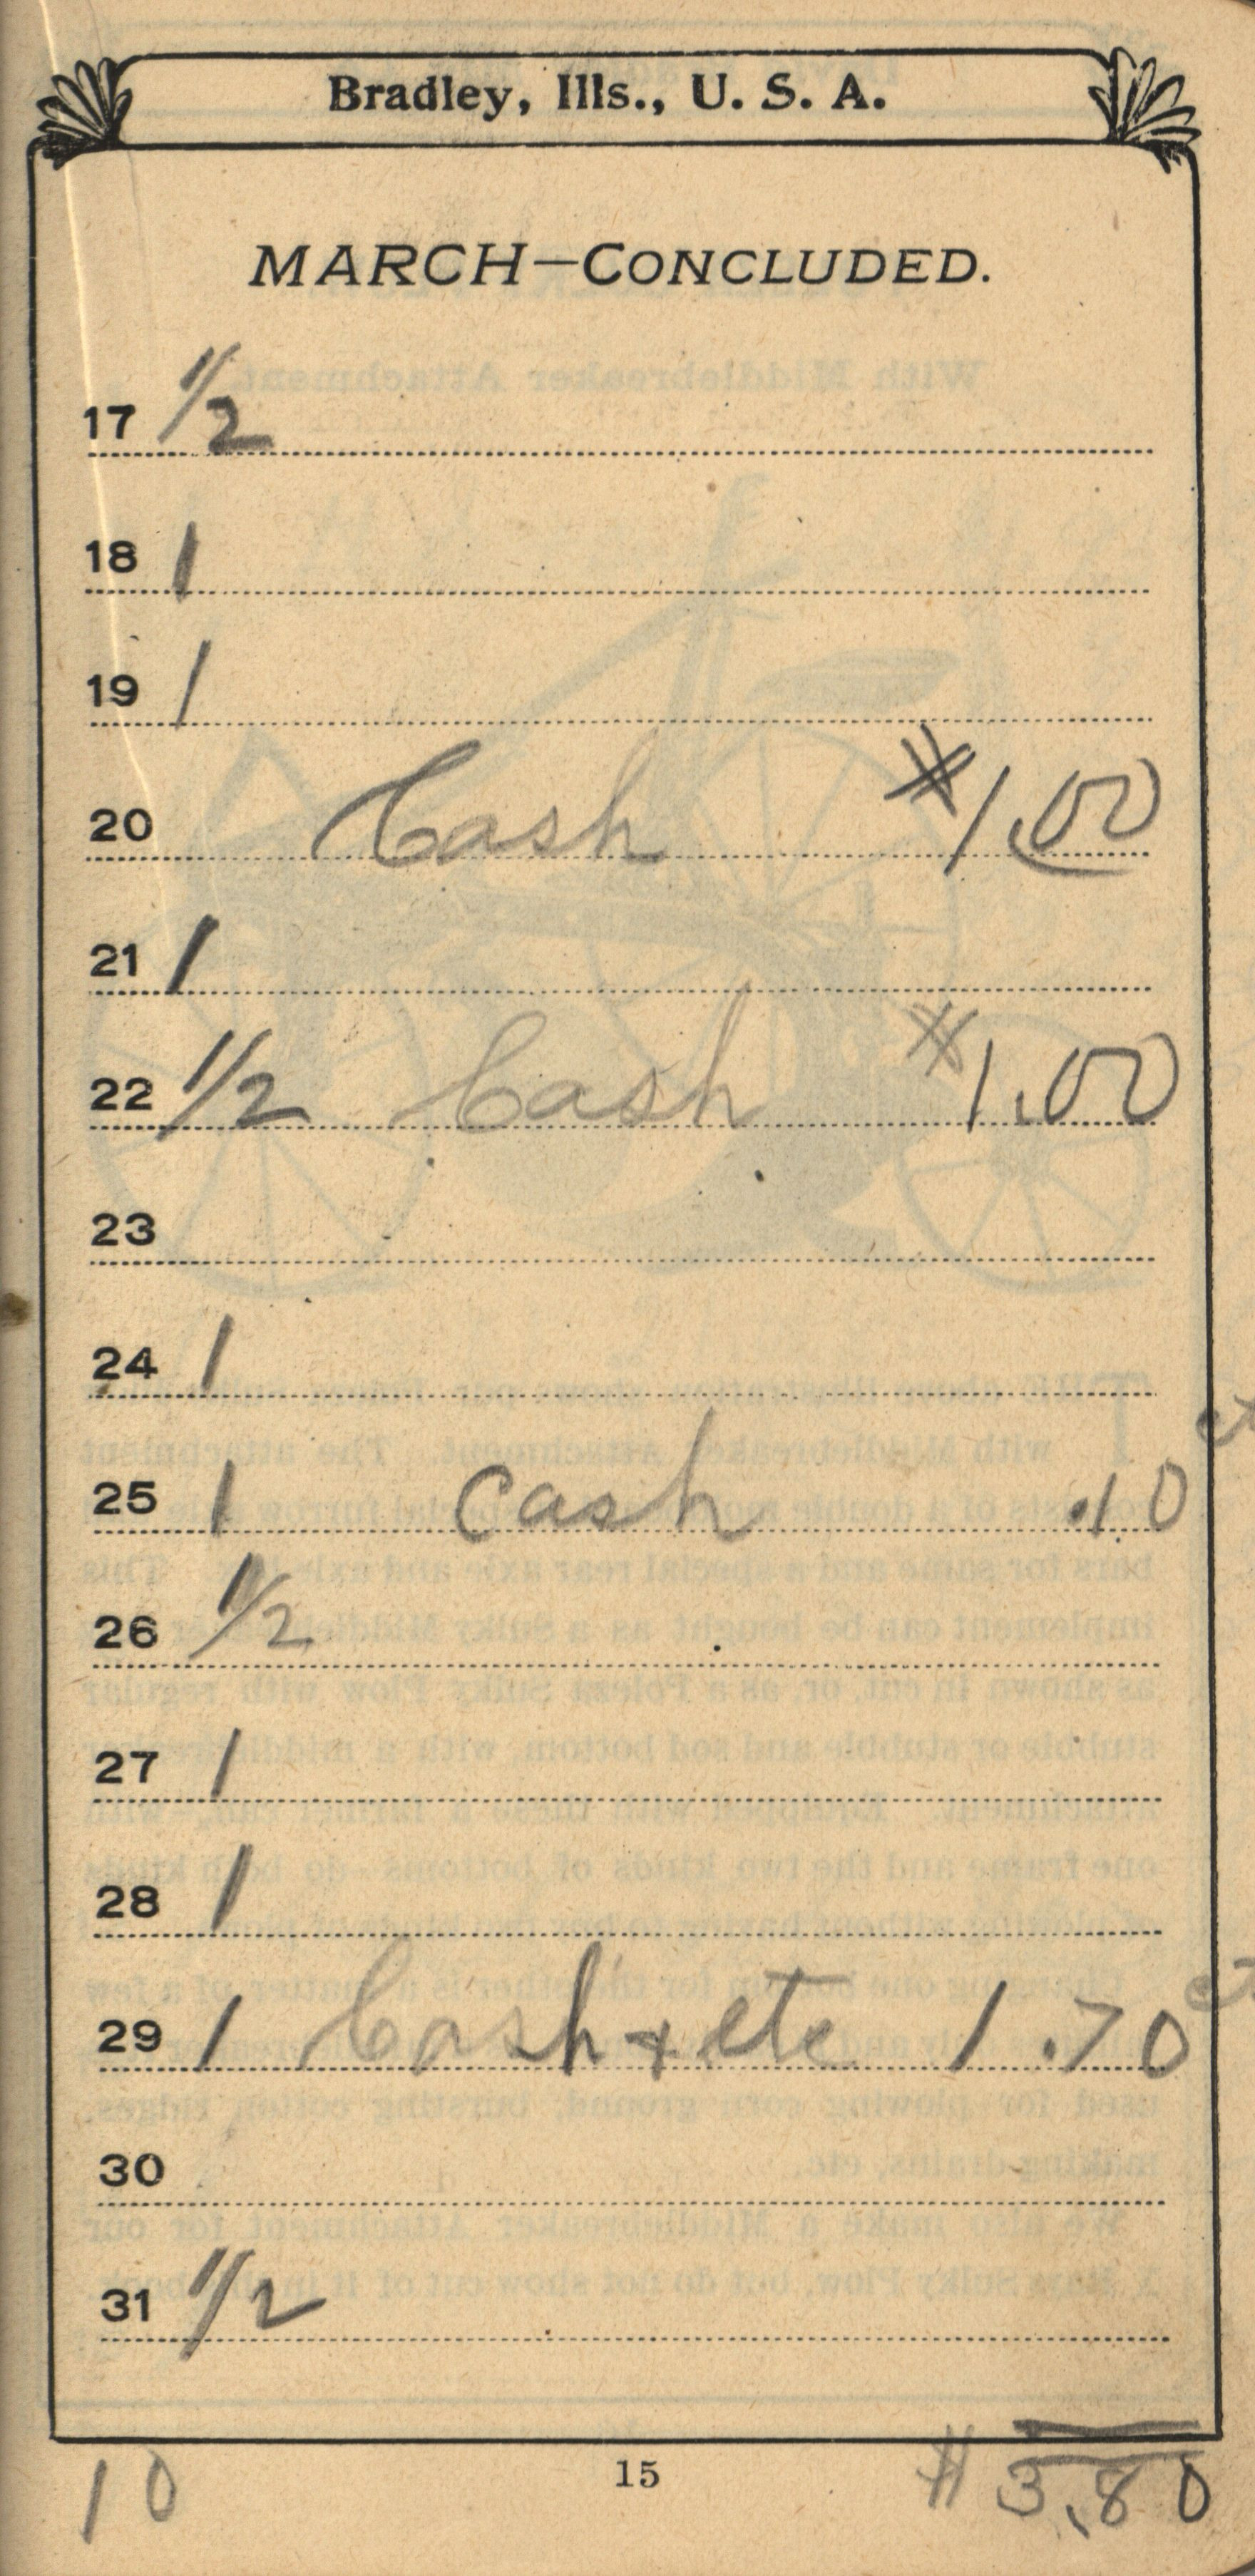 Bradley, Ills., U. S. A.
MARCH—CONCLUDED.
17 1/2
18 1
19 1
20 Cash #1.00
21 1
22 1/2 Cash #1.00
23
24 1
25 1 Cash .10
26 1/2
27 1
28 1
29 1 Cash + etc 1.70
30
31 1/2
10 15 # 3.80